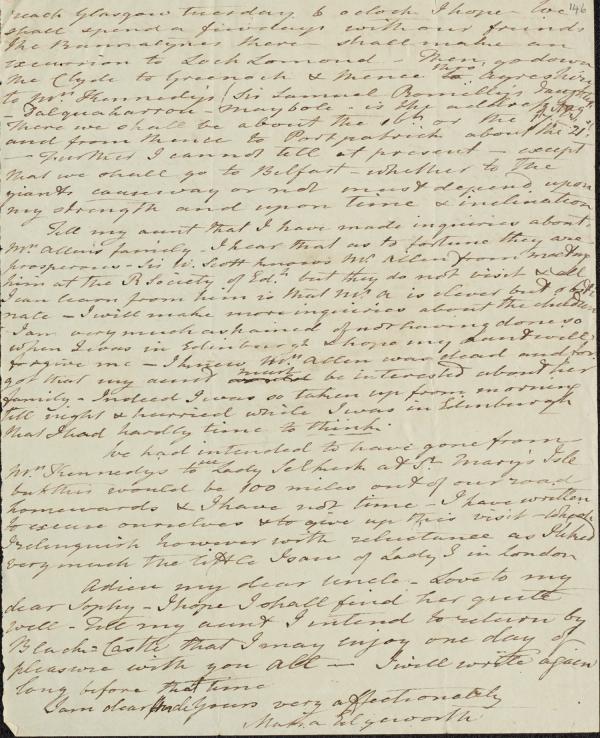 146
reach Glasgow tuesday 6 oclock I hope - we
shall spend a few days with our friends
the Bannatynes there shall make an
excursion to Loch Lomond - Then go down
the Clyde to Greenock & thence to Ayrshire
to Mrs Kennedy's Sir Samuel Romilly's daughter
- Dalquaharran - Maybole - is the address
There we shall be about the 16th or the
and from thence to Portpatrick about the 21st
- Further I cannot tell at present - except
that we shall go to Belfast - whether to the
giants causeway or not must depend upon
my strength and upon time & inclination
Tell my aunt that I have made inquiries about
Mrs Allen's family - I hear that as to fortune they are
prosperous - Sir W. Scott knows Mr Allen from meeting
him at the R Society of Edh but they do not visit & all
I can learn from him is that Mr A is clever but obsti
nate - I will make more inquiries about the children
I am very much ashamed of not having done so
when I was in Edinburgh & hope my aunt will
forgive me - I knew Mrs Allen was dead and for
got that my aunt must be interested about her
family - Indeed I was so taken up from morning
till night & hurried while I was in Edinburgh
that I had hardly time to think.
We had intended to have gone from
Mrs Kennedys to see Lady Selkirk at St Mary's Isle
but this would be 100 miles out of our road
homewards & I have not time. I have written
to excuse ourselves & to give up this visit which
I relinquish however with reluctance as I liked
very much the little I saw of Lady S in London
Adieu my dear Uncle - Love to my
dear Sophy - I hope I shall find her quite
well - Tell my aunt I intend to return by
Black-Castle that I may enjoy one day of
pleasure with you all - I will write again
long before that time
I am dear Uncle Yours very affectionately
Maria Edgeworth